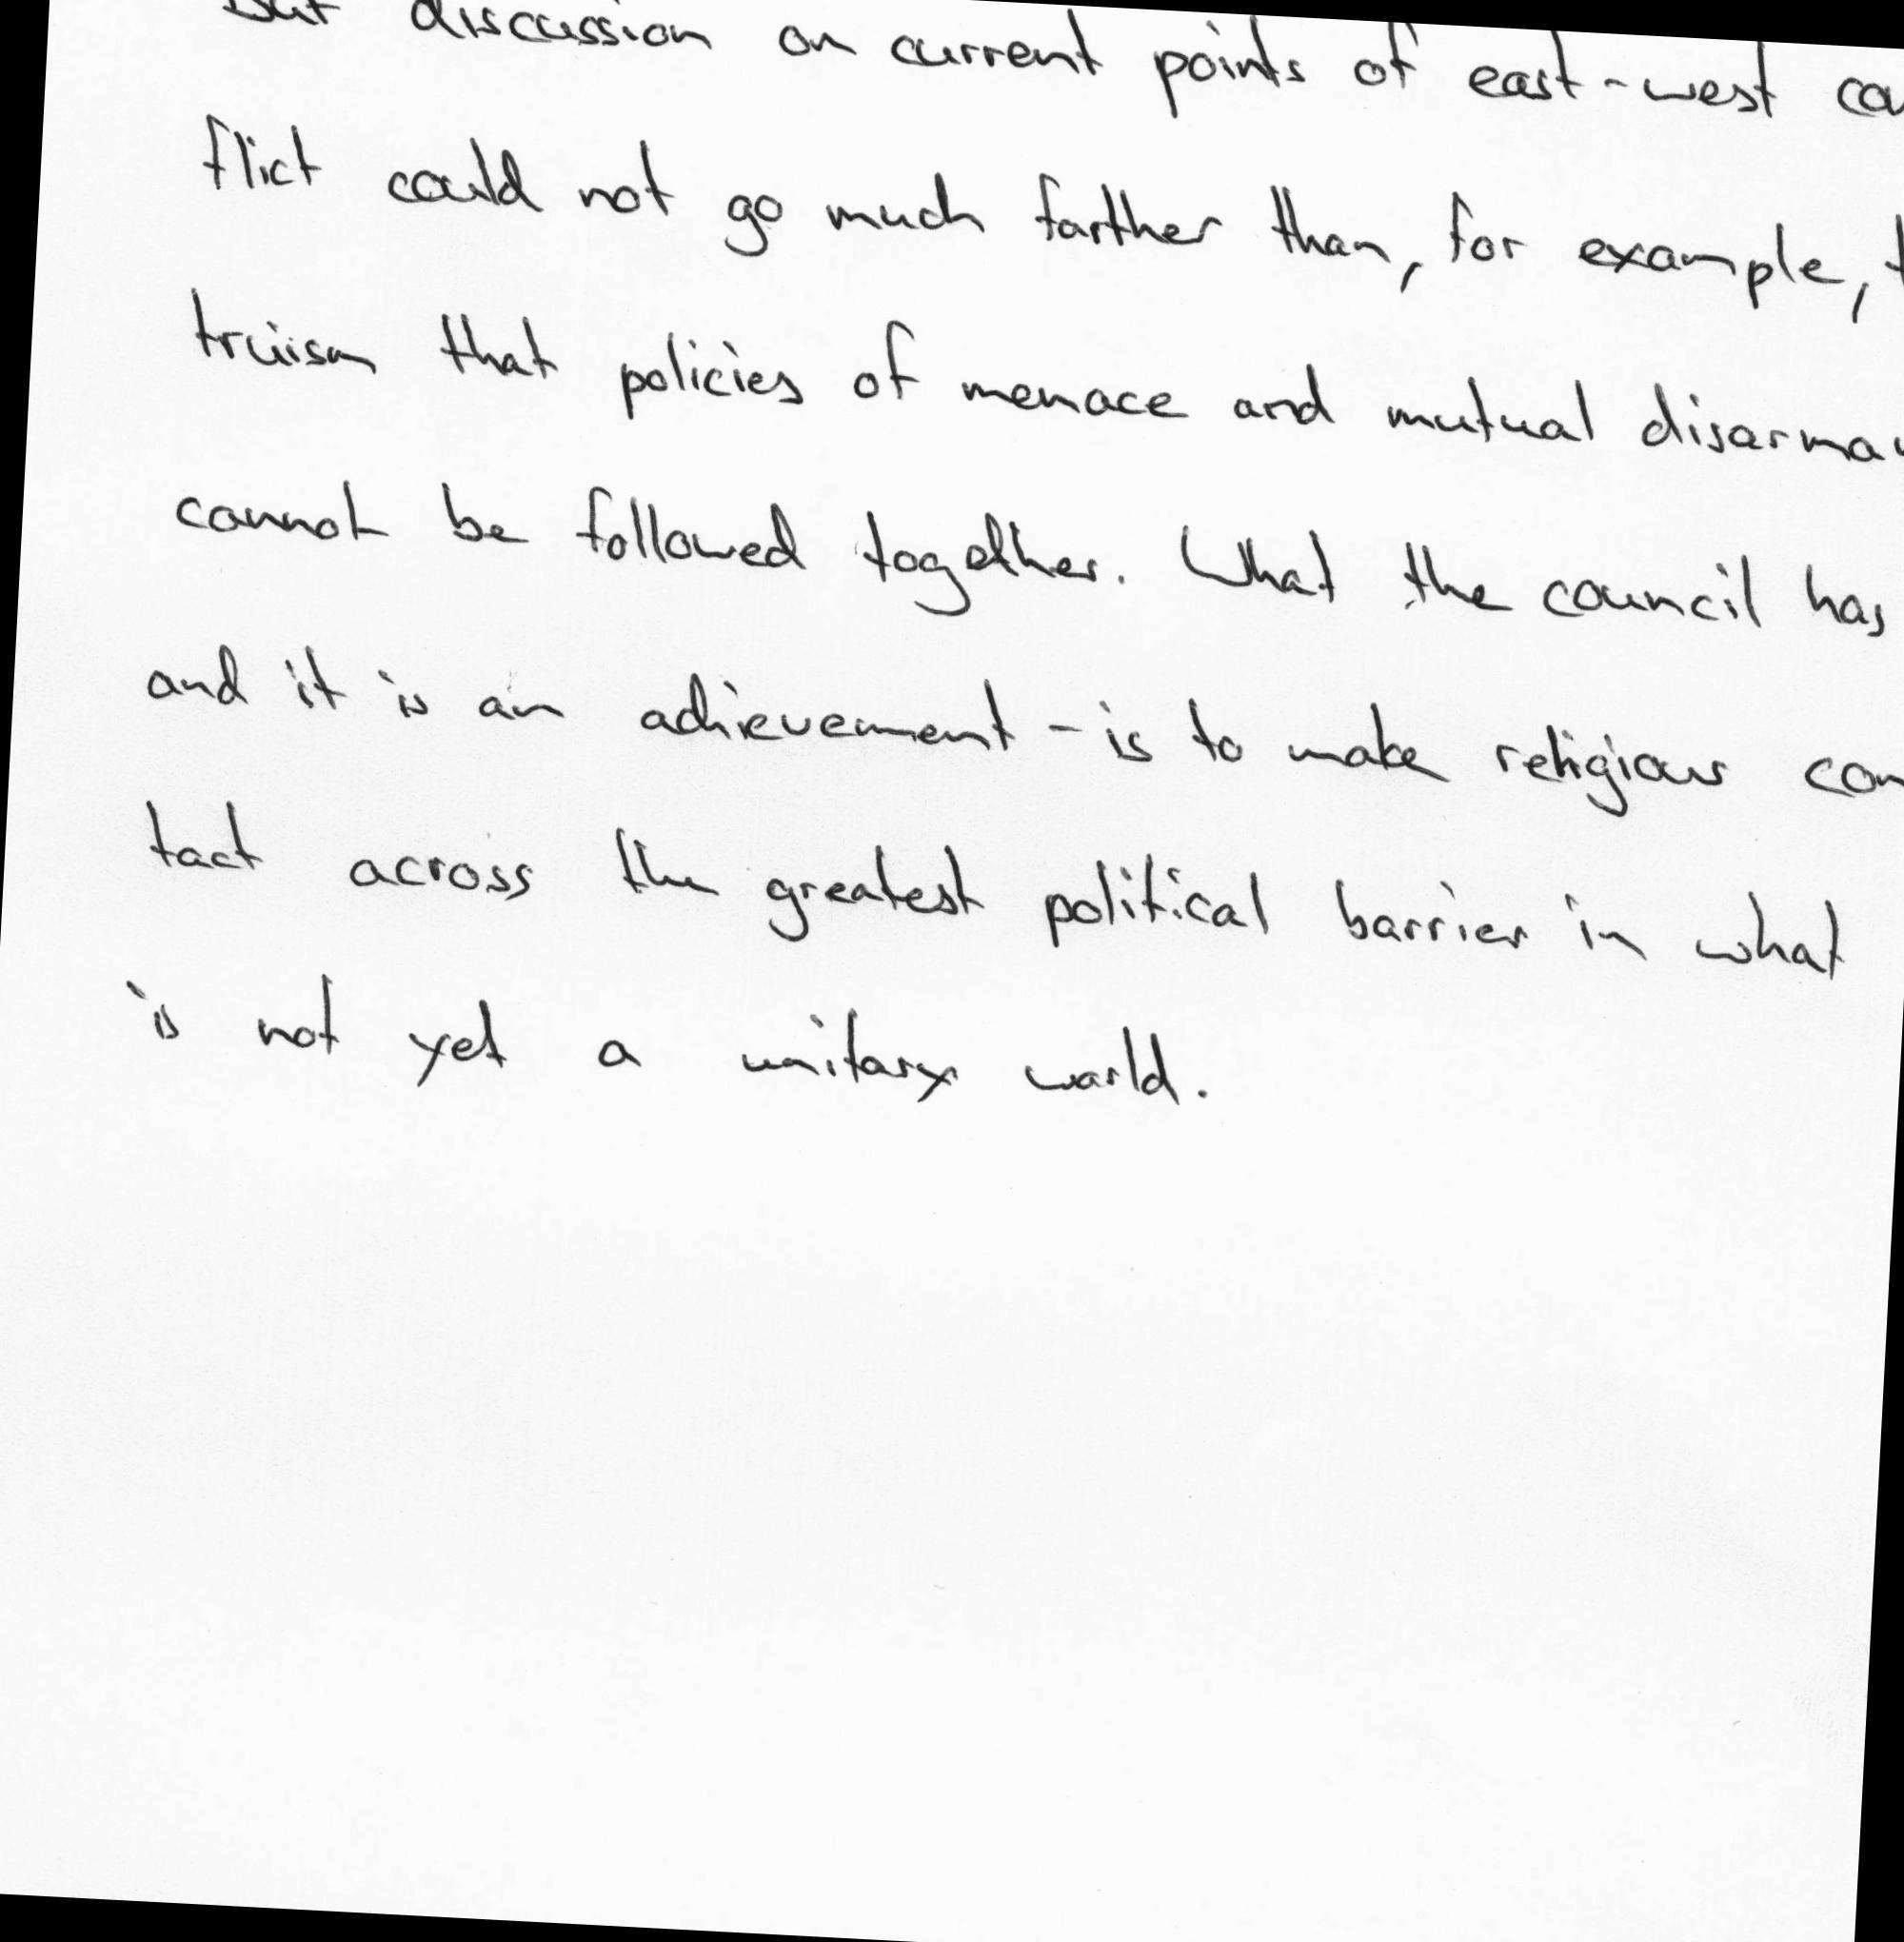 But discussion on current points of east-west con
flict could not go much farther than, for example,
truism that policies of menace and mutual
cannot be followed together. What the council has
and it is an achievement - is to make religious con
tact across the greatest political barrier in what
is not yet a unitary world.